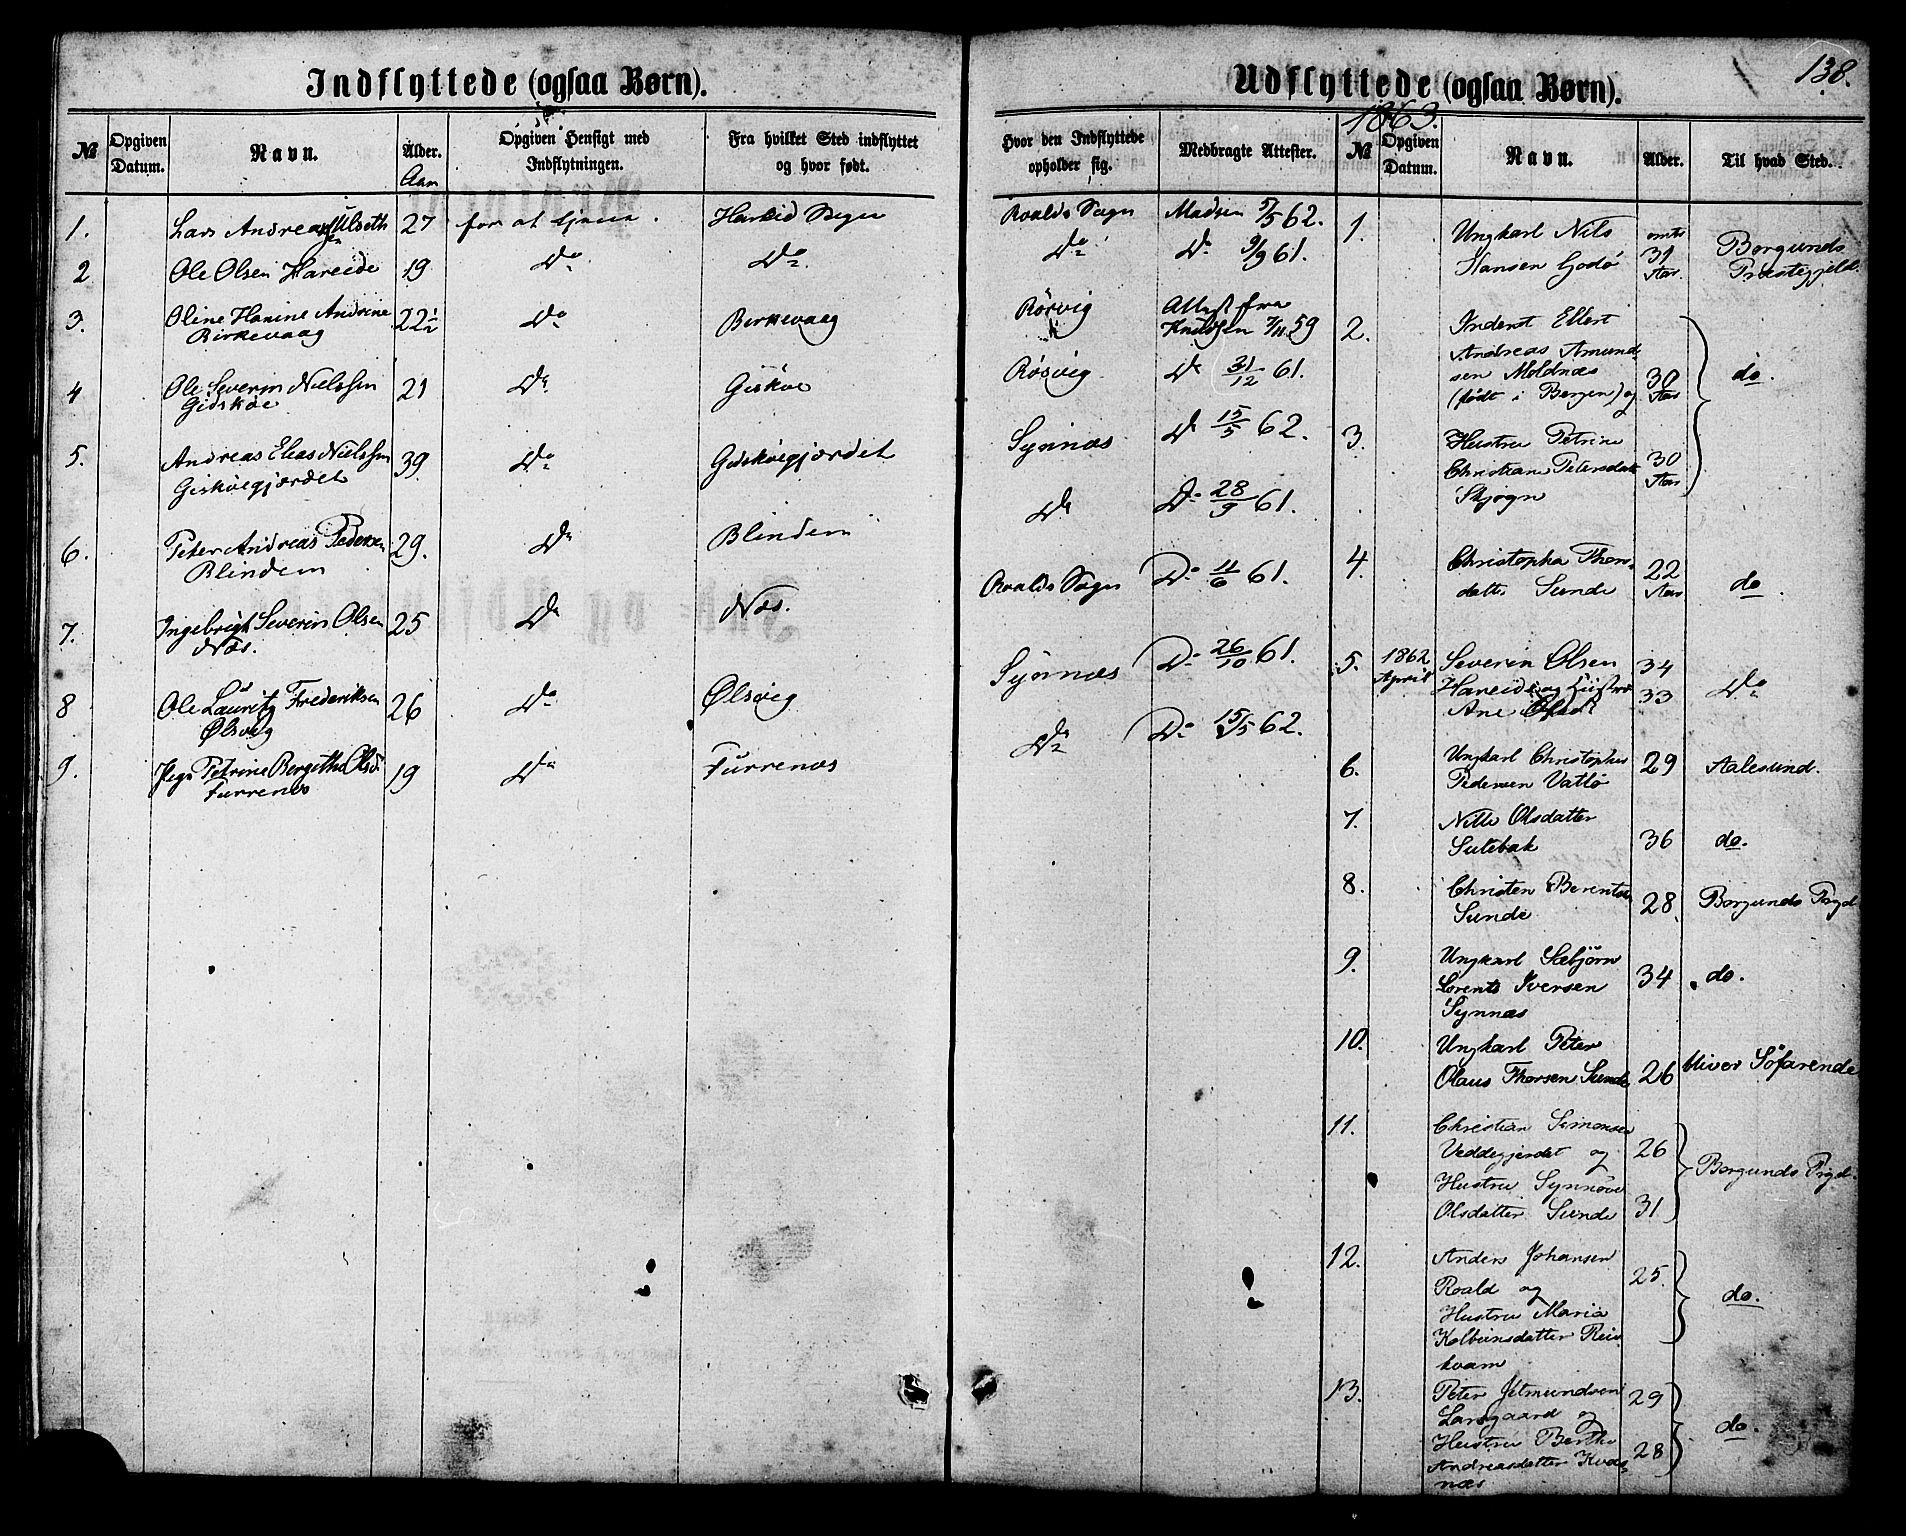 138.
Indflyttede (ogsaa Børn).
№ Opgiven Datum. Navn. Alder. Opgiven Hensigt med Indflytningen. Fra hvilket Sted indflyttet og hvor født. Hvor den Indflyttede opholder sig. Medbragte Attester.
Aar
1. Lars Andreas Ulseth 27 for at tjene. Hareid Sogn Roalds Sogn Madsen 5/5 62.
2 Ole Olsen Hareide 19 Do Do Do Do 9/9 61.
3. Oline Hanine Andrine 22½ Do Birkevaag Rørvig Attest fra
Birkevaag Knudsen 7/11 59
4 Ole Severin Nielssen 21 Do Giskøe Røsvig Do 31/12 61.
Gidskøe
5. Andreas Elias Nielssen 39 Do Gidskøegjærdet Synnæs Do 15/5 62.
Giskøegjærdet
6. Peter Andreas Pedersen 29. Do Blindem Do Do 28/9 61.
Blindem
7. Ingebrigt Severin Olsen 25 Do Næs. Roalds Sogn Do 11/6 61.
Næs.
8 Ole Lauritz Frederiksen 26 Do Ølsvig Synnæs Do 26/10 61.
Ølsvig
9. Pige Petrine Bergitha Olsd 19 Do Furrenæs Do Do 15/5 62.
Furrenæs
Udflyttede (ogsaa Børn).
1863.
№ Opgiven Datum. Navn. Alder. Til hvad Sted.
1. Ungkarl Nils omtr Borgunds
Hansen Godø 31 Aar Præstegjeld.
2. Inderst Ellert
Andreas Amund
sen Moldnæs 30 do.
(født i Bergen) og Aar
3. Hustru Petrine
Christiane Petersdatt 30
Skjogn Aar
4. Christopha Thors 22
datter Sunde Aar do
5. 1862 Severin Olsen 34
April Hareide og Hustru 33 Do
Ane
6. Ungkarl Christopher 29 Aalesund.
Pedersen Vatlø
7. Nille Olsdatter
Sutebak 36 do.
8. Christen Berentsen
Sunde 28. Borgunds Prgd
9. Ungkarl Sæbjørn
Lorents Iversen 34 do.
Synnæs
10. Ungkarl Peter
Olaus Thorsen Sunde 26 bliver Søfarende
11. Christian Simonsen
Veddegjerdet og 26
Hustru Synnøve Borgunds Prgd.
Olsdatter Sunde 31
12. Anders Johansen
Roald og 25
Hustru Maria do.
Kolbeinsdatter Rei
kvam
13. Peter Jetmundsen 29
Langaard og
Hustru Berthe do.
Andreasdatter Kvas 28
næs